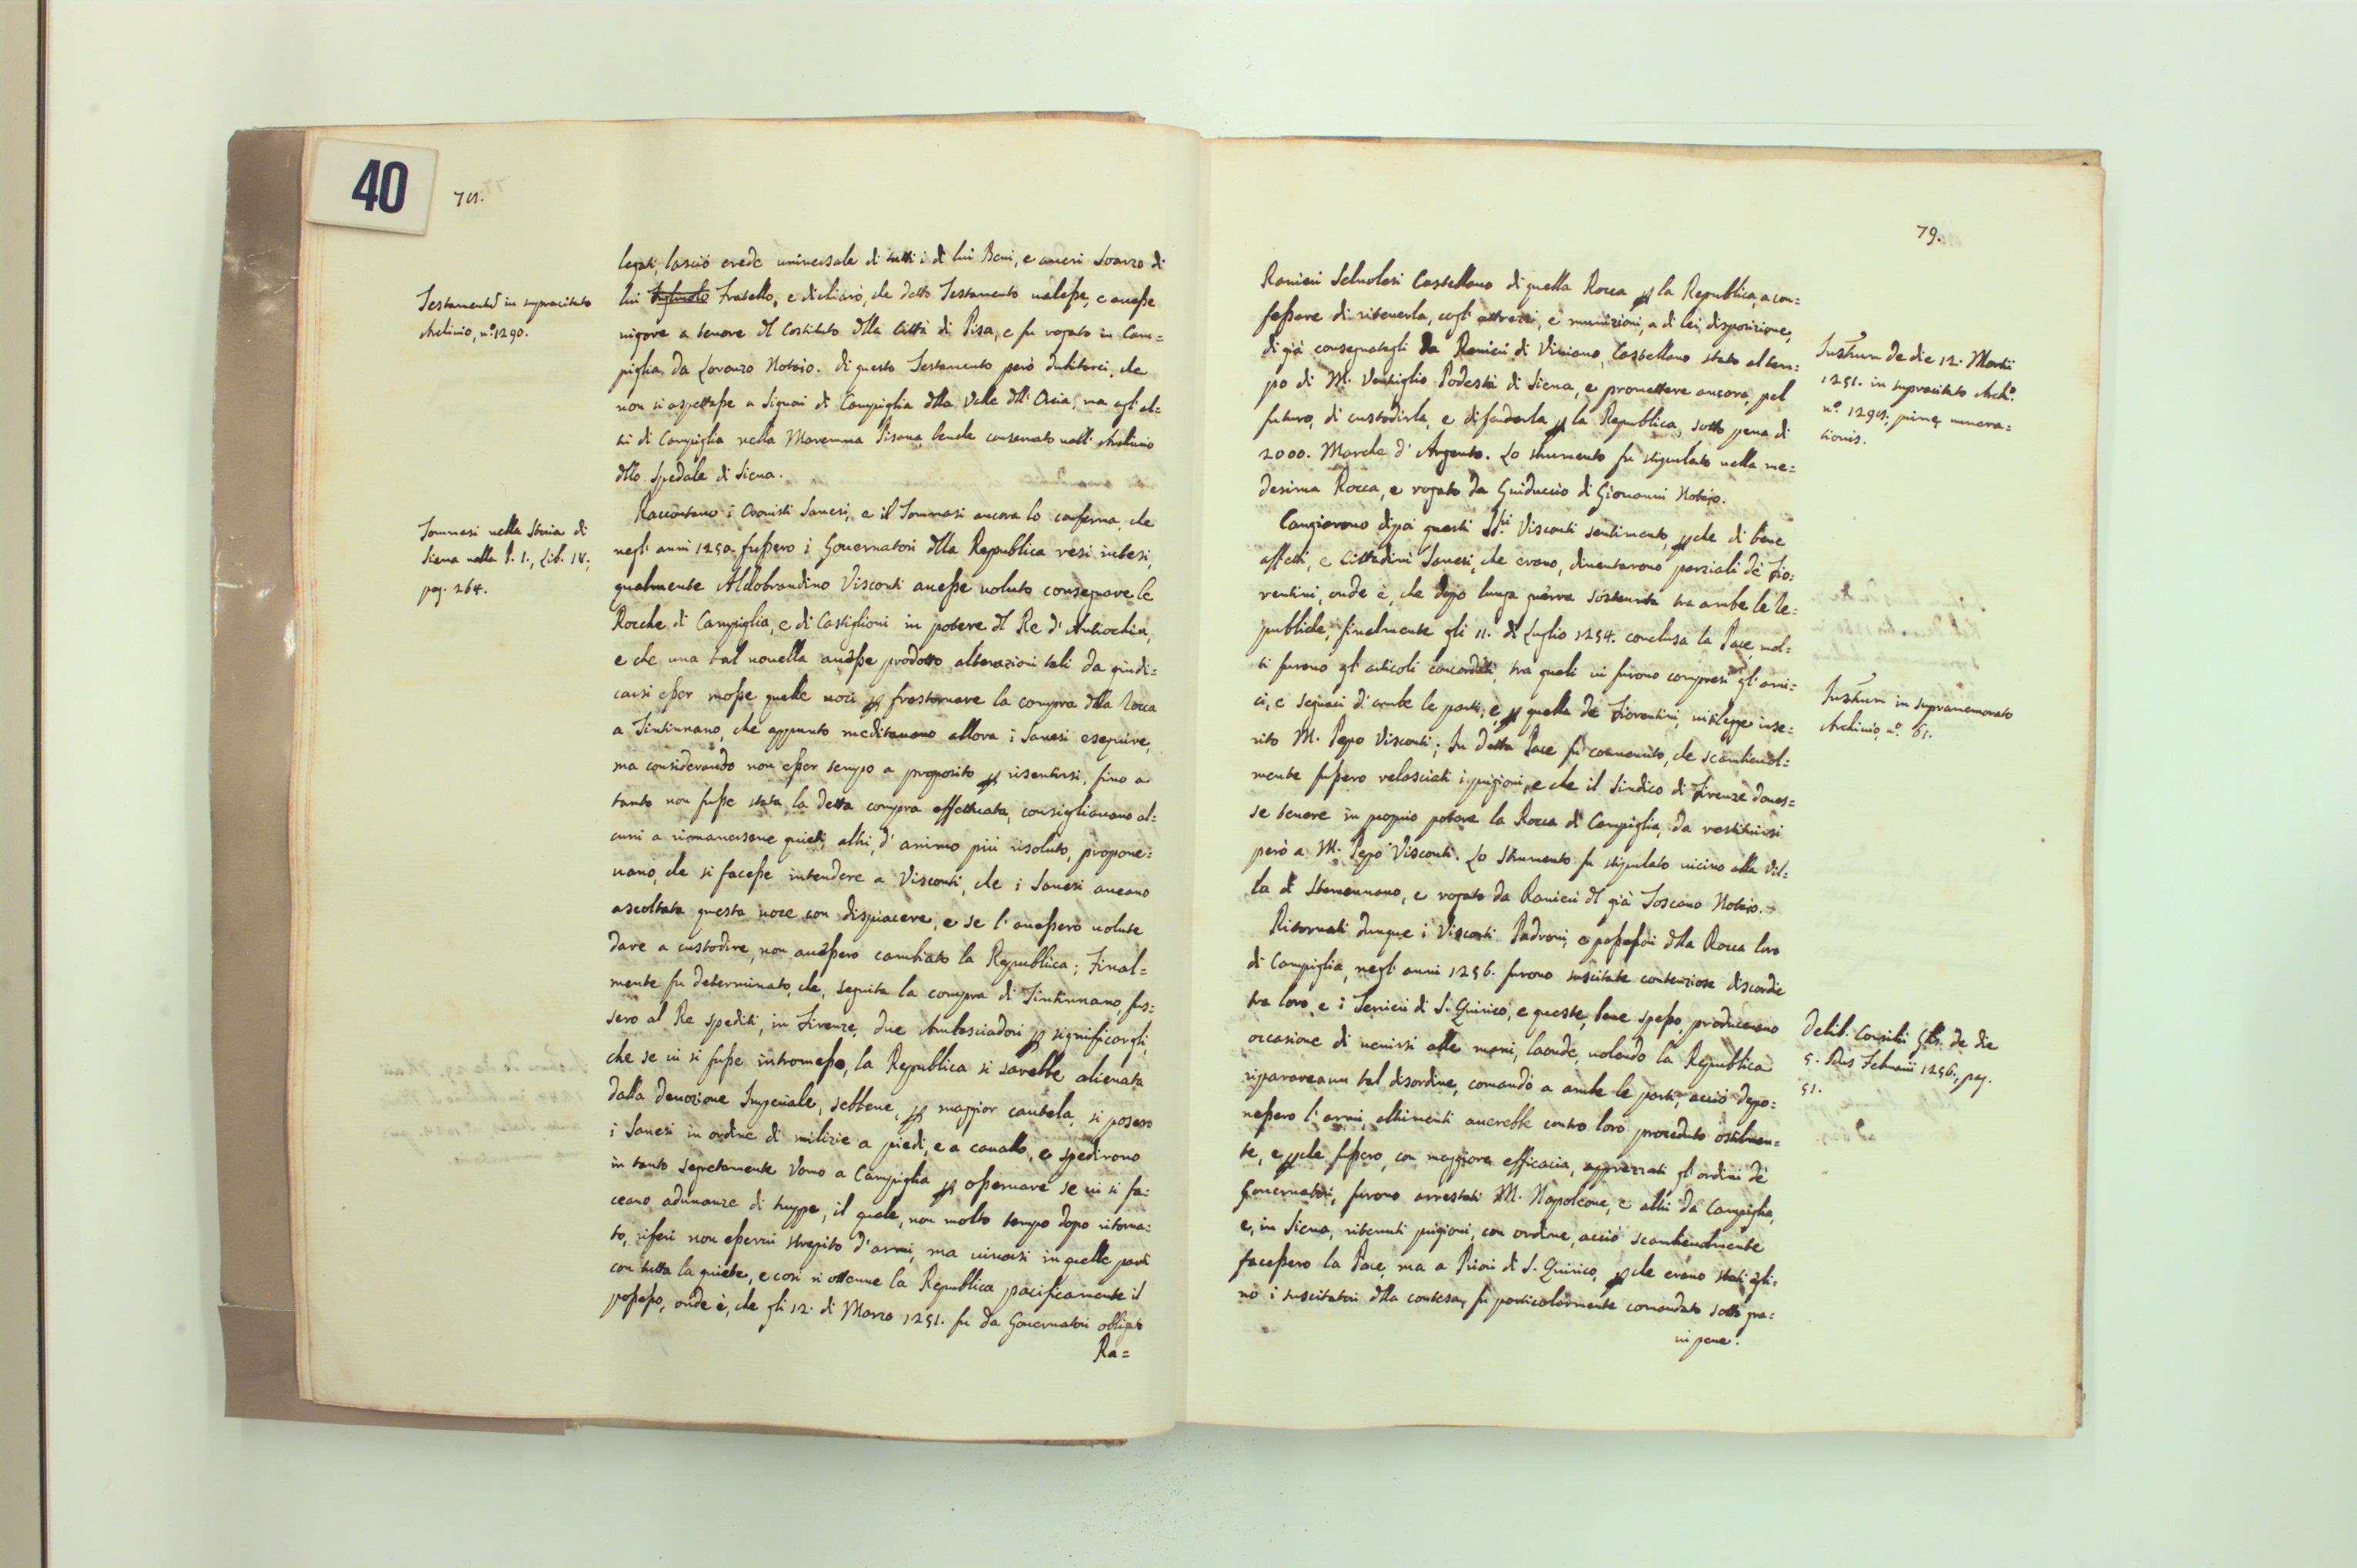 40
78.
legati, lasciò erede universale di tutti i di lui Beni, e averi Soarzo di
lui Figliuolo Fratello, e dichiarò, che detto Testamento valesse, e avesse
vigore a tenore dl Costituto dlla Città di Pisa, e fu rogato in Cam=
piglia da Lorenzo Notaio. di questo Testamento però dubitarei, che
non si aspettasse a Signori di Campiglia dlla Valle dll' Orcia, ma agl' al=
tri di Campiglia nella Maremma Pisana, benche conservato nell' Archivio
dllo Spedale di Siena.
Testamentũ in supracitato
Archivio, n.° 1290.
Raccontano i Cronisti Sanesi, e il Tommasi ancora lo conferma, che
negl' anni 1250. fussero i Governatori dlla Republica resi intesi,
qualmente Aldobrandino Visconti avesse voluto consegnare le
Rocche di Campiglia, e di Castiglioni in potere dl Re d' Antiochia,
e che una tal novella avesse prodotto alterazioni tali da giudi=
carsi esser mosse quelle voci p frastornare la compra dlla Rocca
a Tintinnano, che appunto meditavano allora i Sanesi eseguire,
ma considerando non esser tempo a proposito p risentirsi, fino a
tanto non fusse stata la detta compra effettuata, consigliavano al=
cuni a rimanersene quieti, altri, d' animo più risoluto, propone=
vano, che si facesse intendere a Visconti, che i Sanesi aveano
ascoltata questa voce con dispiacere, e se l' avessero volute
dare a custodire, non avessero cambiato la Republica; Final=
mente fu determinato, che, seguita la compra di Tintinnano, fus=
sero al Re spediti, in Firenze, due Ambasciadori p significargli,
che se vi si fusse intromesso, la Republica si sarebbe alienata
dalla devozione Imperiale, sebbene, p maggior cautela, si posero
i Sanesi in ordine di milizie a piedi, e a cavallo, e spedirono
in tanto segretamente Vomo a Campiglia p osservare se vi si fa=
ceano adunanze di truppe, il quale, non molto tempo dopo ritorna=
to, riferì non esservi strepito d' armi, ma viversi in quelle parti
con tutta la quiete, e così si ottenne la Republica pacificamente il
possesso, onde è, che gli 12. di Marzo 1251. fu da Governatori obligato
Ra=
Tommasi nella Storia di
Siena nella P. 1., Lib. IV.,
pag. 264.
79.
Ranieri Selvolesi Castellano di quella Rocca p la Republica, a con=
fessare di ritenerla, cogl' attrezzi, e munizioni, a di lei disposizione,
di già consegnategli da Ranieri di Viviano, Castellano stato al tem=
po di M. Ventiglio Podestà di Siena, e promettere ancora, pel
futuro, di custodirla, e difenderla p la Republica, sotto pena di
2000. Marche d' Argento. Lo strumento fu stipulato nella me=
desima Rocca, e rogato da Guiduccio di Giovanni Notaio.
Instrum de die 12. Martii
1251. in supracitato Arch.°
n.° 1298. primę numera=
tionis.
Cangiarono dipoi questi Sri. Visconti sentimento, pche di bene
affetti, e Cittadini Sanesi, che erano, diventarono parziali de Fio=
rentini, onde è, che dopo lunga guerra sostenuta tra ambe le Re=
publiche, finalmente gli 11. di Luglio 1254. conclusa la Pace, mol=
ti furono gl' articoli concordati, tra quali vi furono compresi gl' ami=
ci, e seguaci d' ambe le parti, e, p quella de Fiorentini, vi si legge inse=
rito M. Pepo Visconti; In detta Pace fu convenuto, che scambievol=
mente fussero relasciati i prigioni, e che il Sindico di Firenze doves=
se tenere in proprio potere la Rocca di Campiglia, da restituirsi
però a M. Pepo Visconti. Lo Strumento fu stipulato vicino alla Vil=
la di Stomennano, e rogato da Ranieri dl già Toscano Notaio.
Instrum in supramemorato
Archivio, n.° 61.
Ritornati dunque i Visconti Padroni, e possessori dlla Rocca loro
di Campiglia, negl' anni 1256. furono suscitate contenziose discordie
tra loro, e i Terrieri di S. Quirico, e queste, bene spesso, producevano
occasione di venirsi alle mani, laonde, volendo la Republica
riparare a un tal disordine, comandò a ambe le parti, acciò depo=
nessero l' armi, altrimenti averebbe contro loro proceduto ostilmen=
te, e pche fussero, con maggiore efficacia, apprezzati gl' ordini de
Governatori, furono arrestati M. Napoleone, e altri da Campiglia,
e, in Siena, ritenuti prigioni, con ordine, acciò scambievolmente
facessero la Pace, ma a Priori di S. Quirico, pche erano stati egli=
no i suscitatori dlla contesa, fu particolarmente comandato sotto gra=
vi pene.
Delib. Consilii Glis. de die
5. Idus Februarii 1256., pag.
51.